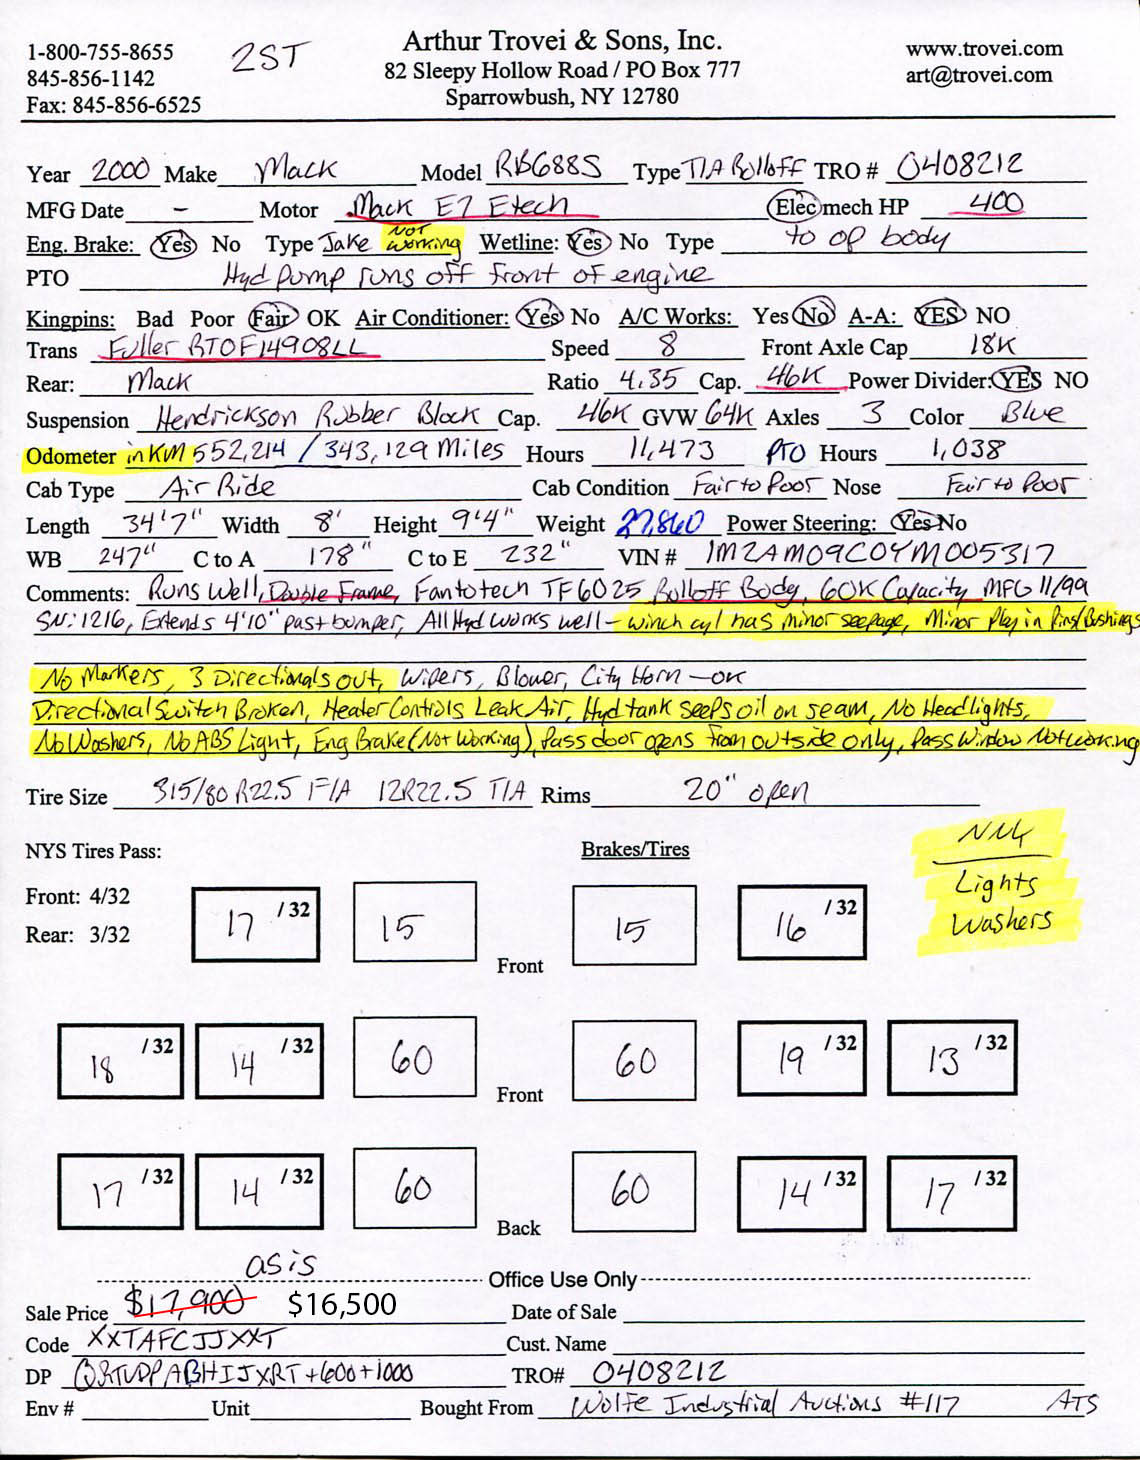 1-800-755-8655
845-856-1142
Fax: 845-856-6525
2ST
Arthur Trovei & Sons, Inc.
82 Sleepy Hollow Road / PO Box 777
Sparrowbush, NY 12780
www.trovei.com
art@trovei.com
Year 2000 Make Mack Model RB688S Type T/A Rolloff TRO # 0408212
MFG Date - Motor Mack E7 Etech Elec mech HP 400
Eng. Brake: Yes No Type Jake Not Working Wetline: Yes No Type to op body
PTO Hyd pump runs off front of engine
Kingpins: Bad Poor Fair OK Air Conditioner: Yes No A/C Works: Yes No A-A: YES NO
Trans Fuller RTOF14908LL Speed 8 Front Axle Cap 18K
Rear: Mack Ratio 4.35 Cap. 46K Power Divider: YES NO
Suspension Hendrickson Rubber Block Cap. 46K GVW 64K Axles 3 Color Blue
Odometer in KM 552,214 / 343,129 Miles Hours 11,473 PTO Hours 1,038
Cab Type Air Ride Cab Condition Fair to Poor Nose Fair to Poor
Length 34'7" Width 8' Height 9'4" Weight 27,860 Power Steering: Yes No
WB 247" C to A 178" C to E 232" VIN # 1M2AM09C0YM005317
Comments: Runs Well, Double Frame, Fantotech TF6025 Rolloff Body, 60K Capacity MFG 11/99
SN: 1216, Extends 4'10" past bumper, All Hyd works well - winch cyl has minor seepage, Minor Play in Pins/Bushings
No Markers, 3 Directionals out, Wipers, Blower, City Horn - OK
Directional Switch Broken, Heater Controls Leak Air, Hyd tank seeps oil on seam, No Headlights,
No Washers, No ABS Light, Eng Brake (Not Working), Pass door opens from outside only, Pass Window Not working
Tire Size 315/80R22.5 F/A 12R22.5 T/A Rims 20" open
NYS Tires Pass: Brakes/Tires
Front: 4/32
Rear: 3/32
17 /32 15 Front 15 16 /32
Lights
Washers
18 /32 14 /32 60 Front 60 19 /32 13 /32
17 /32 14 /32 60 Back 60 14 /32 17 /32
as is
Office Use Only
Sale Price $17,900 $16,500 Date of Sale
Code XXTAFCJJXXT Cust. Name
DP QRTUDPABHIJXRT +600+1000 TRO# 0408212
Env # Unit Bought From Wolfe Industrial Auctions #117 ATS